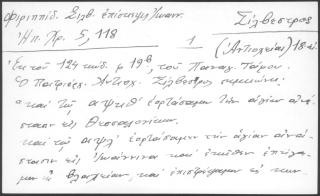 Φιριππίδ. Σιλβ. ἐπίσκεψις Ἰωανν.
Σίλβεστρος
Ἠπ. Χρ. 5, 118
1
(Ἀντιοχείας) 18 αἰ.
Ἐκ τοῦ 124 κώδ. φ 19β, τοῦ Παναγ. Τάφου.
Ὁ Πατριάρχ. Ἀντιοχ. Σίλβεστρος σημειώνει:
"καὶ τῷ αψκθ' ἑορτάσαμεν τὴν ἁγίαν ἀνά-
στασιν εἰς Θεσσαλονίκην.
καὶ τῷ αψλ' ἑορτάσαμεν τὴν ἁγίαν ἀνά-
στασιν εἰς Ἰωάννινα καὶ ἐκεῖθεν ἐπήγα-
μεν εἰς Βλαχίαν, καὶ ἐπιστρέψαμεν εἰς